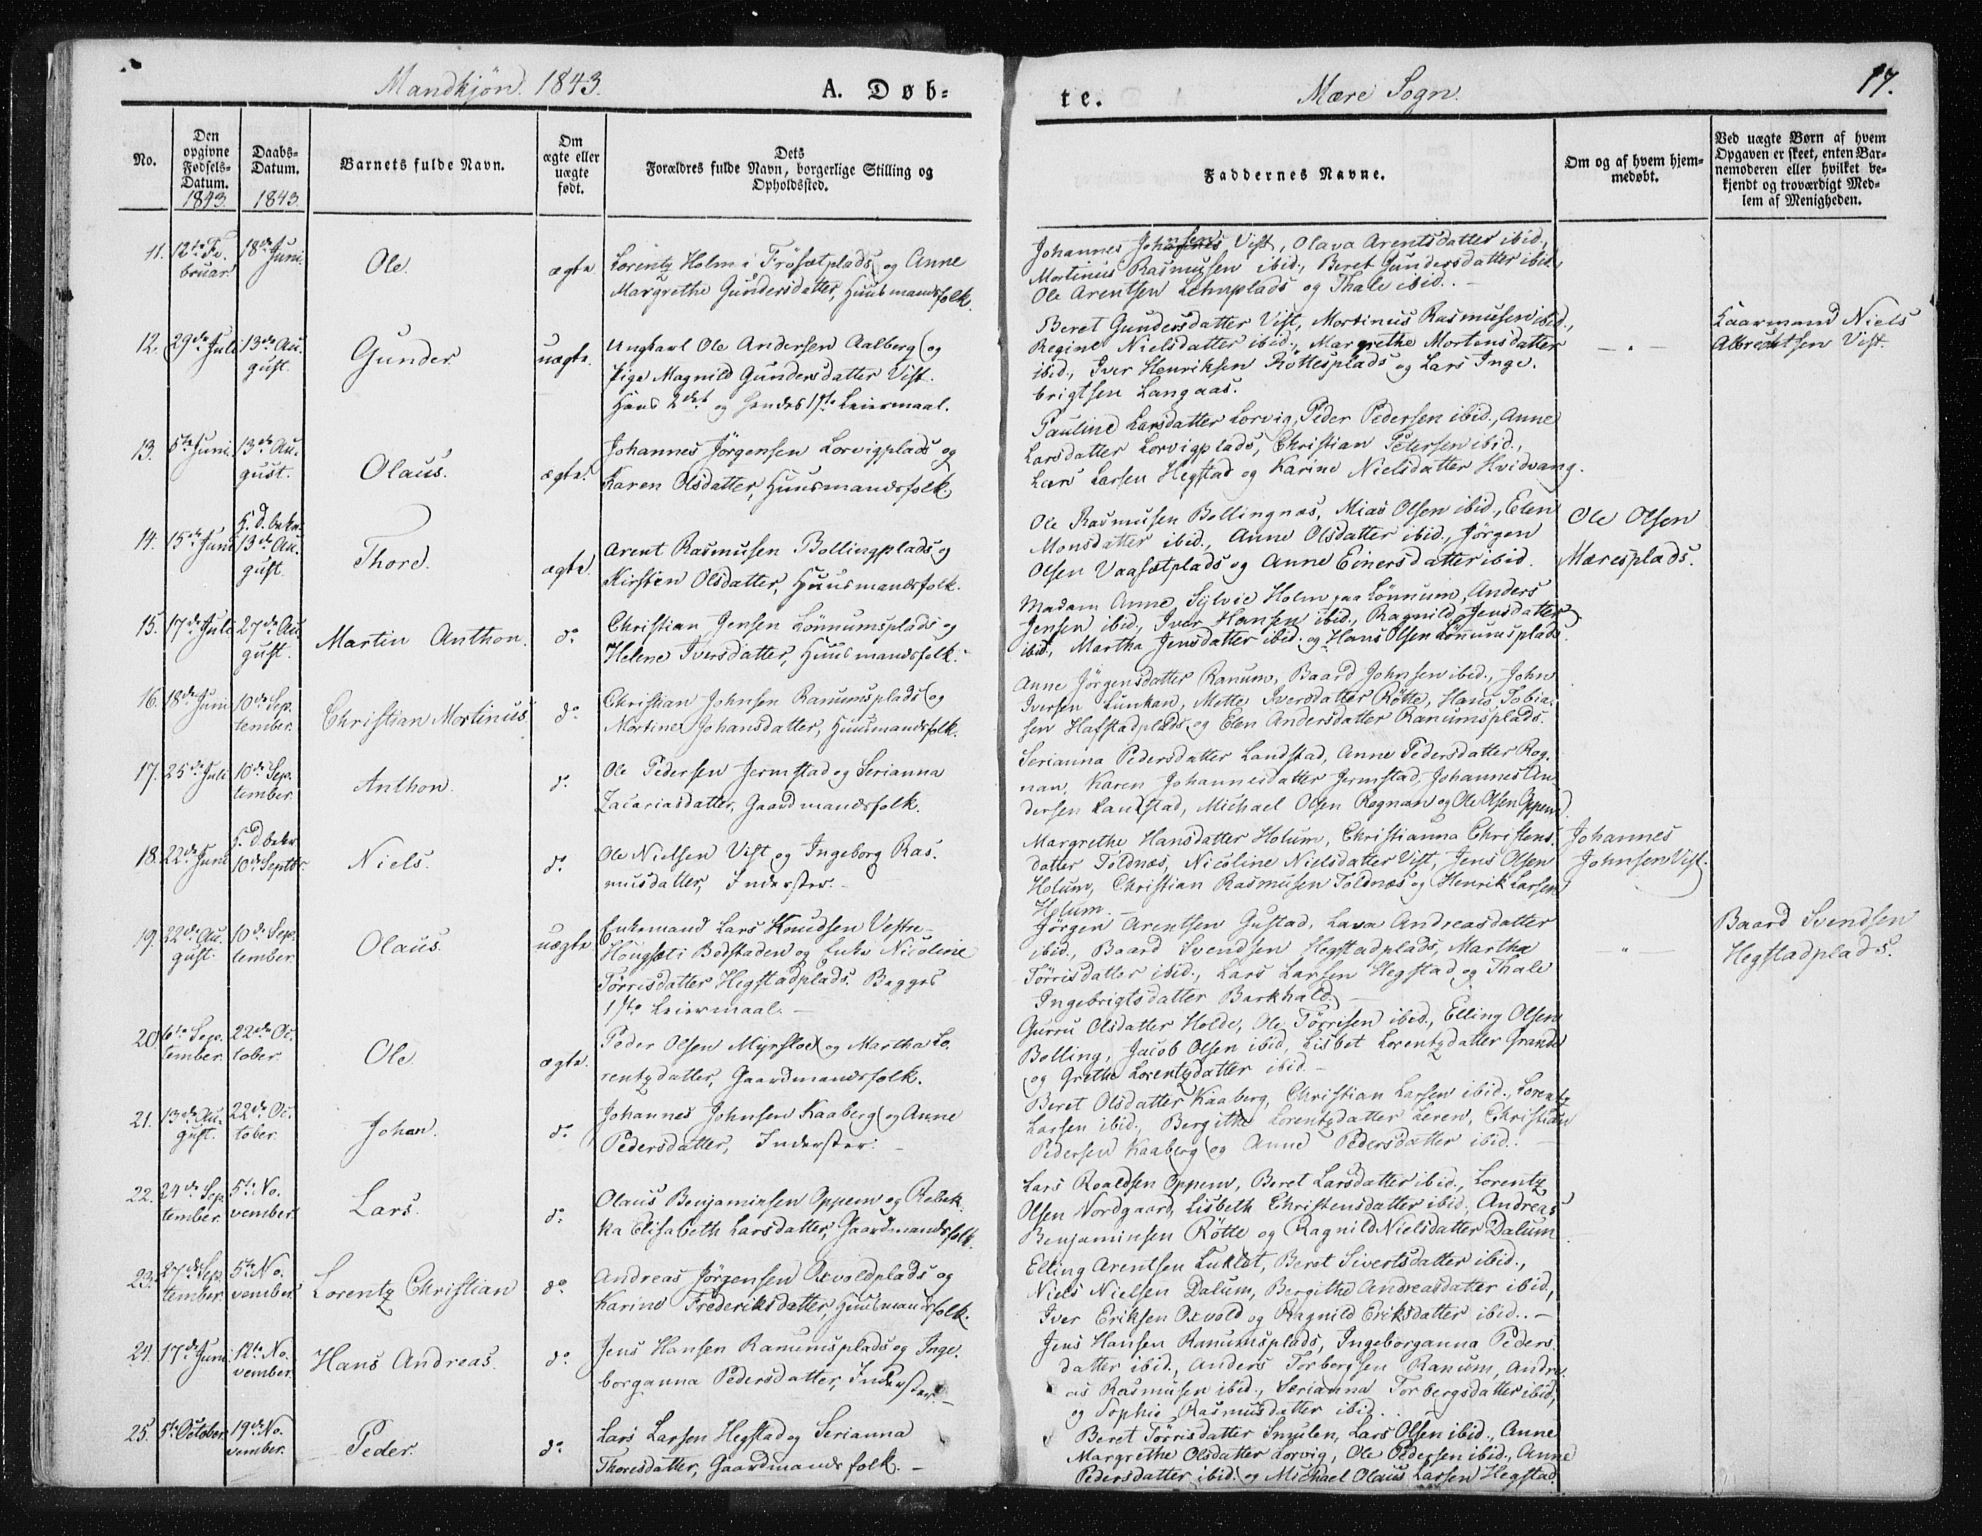 Mandkjøn. 1843.
A. Døb=
te.
Mære Sogn.
17.
No.
Den opgivne Fødsels-Datum. 1843.
Daabs-Datum. 1843.
Barnets fulde Navn.
Om ægte eller uægte født.
Dets
Forældres fulde Navn, borgerlige Stilling og
Opholdssted.
Faddernes Navne.
Om og af hvem hjem-
medøbt.
Ved uægte Børn af hvem
Opgaven er skeet, enten Bar-
nemoderen eller hvilket be-
kjendt og troværdigt Med-
lem af Menigheden.
11. 12te Fe-
bruar.
18de Juni.
Ole.
ægte.
Lorentz Holm i Frøsetplads og Anne
Margrethe Gundersdatter, Huusmandsfolk.
Johannes Johnsen Vist, Olava Arentsdatter ibid.,
Mortinus Rasmusen ibid., Beret Gundersdatter ibid.,
Ole Arentsen Lehnplads og Thale ibid. -
12. 29de Juli
13de Au-
gust.
Gunder.
uægte.
Ungkarl Ole Andersen Aalberg og
Pige Magnild Gundersdatter Vist.
Hans 2det og hendes 1ste Leiermaal.
Beret Gundersdatter Vist, Mortinus Rasmusen ibid.,
Regine Nielsdatter ibid., Margrethe Mortensdatter
ibid., Iver Henriksen Røttesplads og Lars Inge-
brigtsen Langaas.
Gaarmand Niels
Albrechtsen Vist.
13. 5te Juni.
13de Au-
gust.
Olaus.
ægte.
Johannes Jörgensen Lorvigplads og
Karen Olsdatter, Huusmandsfolk.
Pauline Larsdatter Lorvig, Peder Pedersen ibid., Anne
Larsdatter Lorvigplads, Christian Petersen ibid.,
Lars Larsen Hegstad og Karine Nielsdatter Hvidvang.
14. 15de Juni
H. D. bekr.
13de Au-
gust.
Thore.
ægte.
Arent Rasmusen Bollingplads og
Kirsten Olsdatter, Huusmandsfolk.
Ole Rasmusen Bollingnæs, Mias Olsen ibid., Elen
Monsdatter ibid., Anne Olsdatter ibid., Jörgen
Olsen Vaasetplads og Anne Einersdatter ibid.
Ole Olsen
Mæresplads.
15. 17de Juli
27de Au-
gust.
Martin Anthon.
do
Christian Jensen Lönnumsplads og
Helene Iversdatter, Huusmandsfolk.
Madam Anne Sylvie Holm paa Lönnum, Anders
Jensen ibid., Iver Hansen ibid., Ragnild Jensdatter
ibid., Martha Jensdatter ibid. og Hans Olsen Lönnumsplads.
16. 18de Juni
10de Sep-
tember.
Christian Mortinus
do
Christian Johnsen Ranumsplads og
Mortine Johansdatter, Huusmandsfolk.
Anne Jörgensdatter Ranum, Baard Johnsen ibid., John
Iversen Lunkan, Mette Iversdatter Røtte, Hans Tobia-
sen Hafstadplads og Elen Andersdatter Ranumsplads.
17. 25de Juli
10de Sep-
tember.
Anthon.
do
Ole Pedersen Jermstad og Serianna
Zacariasdatter, Gaardmandsfolk.
Serianna Pedersdatter Landstad, Anne Pedersdatter Rog-
nan, Karen Johannesdatter Jermstad, Johannes An-
dersen Landstad, Michael Olsen Rognan og Ole Olsen Oppem.
18. 22de Juni
H. D. bekr.
10de Septbr.
Niels.
do
Ole Nielsen Vist og Ingeborg Ras-
musdatter, Inderster. -
Margrethe Hansdatter Holum, Christianna Christens-
datter Toldnæs, Nicoline Nielsdatter Vist, Jens Olsen
Holum, Christian Rasmusen Toldnæs og Henrik Larsen
Holum. -
Johannes
Johnsen Vist.
19. 22de Au-
gust.
10de Sep-
tember.
Olaus.
uægte
Enkemand Lars Knudsen Vestre
Hougseti Bodstaden og Enke Nicoline
Törrisdatter Hegstadplads. Begges
1ste Leiermaal. -
Jörgen Arentsen Gustad, Lava Andreasdatter
ibid., Baard Svendsen Hegstadplads, Martha
Törrisdatter ibid., Lars Larsen Hegstad og Thale
Ingebrigtsdatter Barkhald.
Baard Svendsen
Hegstadplads.
20. 6te Sep-
tember.
22de Oc-
tober.
Ole
ægte.
Peder Olsen Myrsloe og Martha Lo-
rentzdatter, Gaardmandsfolk.
Gurru Olsdatter Holde, Ole Törrisen ibid., Elling Olsen
Bolling, Jacob Olsen ibid, Lisbet Lorentzdatter Grande
og Grethe Lorentzdatter ibid. -
21. 13de Au-
gust.
22de Oc-
tober.
Johan.
do
Johannes Johnsen Kaaberg og Anne
Pedersdatter, Inderster. -
Beret Olsdatter Kaaberg, Christian Larsen ibid., Lorentz
Larsen ibid., Bergithe Lorentzdatter Leren, Christian
Pedersen Kaaberg og Anne Pedersdatter ibid. -
22. 24de Sep-
tember.
5te No-
vember.
Lars.
do
Olaus Benjaminsen Oppem og Rebek-
ka Elisabeth Larsdatter, Gaardmandsfolk.
Lars Roaldsen Oppem, Beret Larsdatter ibid., Lorentz
Olsen Nordgaard, Lisbeth Christensdatter ibid., Andreas
Benjaminsen Røtte og Ragnild Nielsdatter Dalum.
23. 27de Sep-
tember.
5te No-
vember.
Lorentz Christian
do
Andreas Jörgensen Qvoldplads og
Karine Frederiksdatter, Huusmandsfolk.
Elling Arentsen Lukket, Beret Sivertsdatter ibid.,
Niels Nielsen Dalum, Bergithe Andreasdatter ibid.,
Iver Eriksen Qvold og Ragnild Eriksdatter ibid. -
24. 17de Juni
12te No-
vember.
Hans Andreas.
do
Jens Hansen Ranumsplads og Inge-
borganna Pedersdatter, Inderster. -
Jens Hansen Ranumsplads, Ingeborganna Peders-
datter ibid., Anders Torbergsen Ranum, Andre-
as Rasmusen ibid., Serianna Torbergsdatter ibid.,
og Sophie Rasmusdatter ibid.
25. 5te October.
19de No-
vember.
Peder.
do
Lars Larsen Hegstad og Serianna
Thoresdatter, Gaardmandsfolk. -
Beret Törrisdatter Snulen, Lars Olsen ibid., Anne
Margrethe Olsdatter Lorvig, Ole Pedersen ibid., Anne
Pedersdatter ibid. og Michael Olaus Larsen Hegstad.